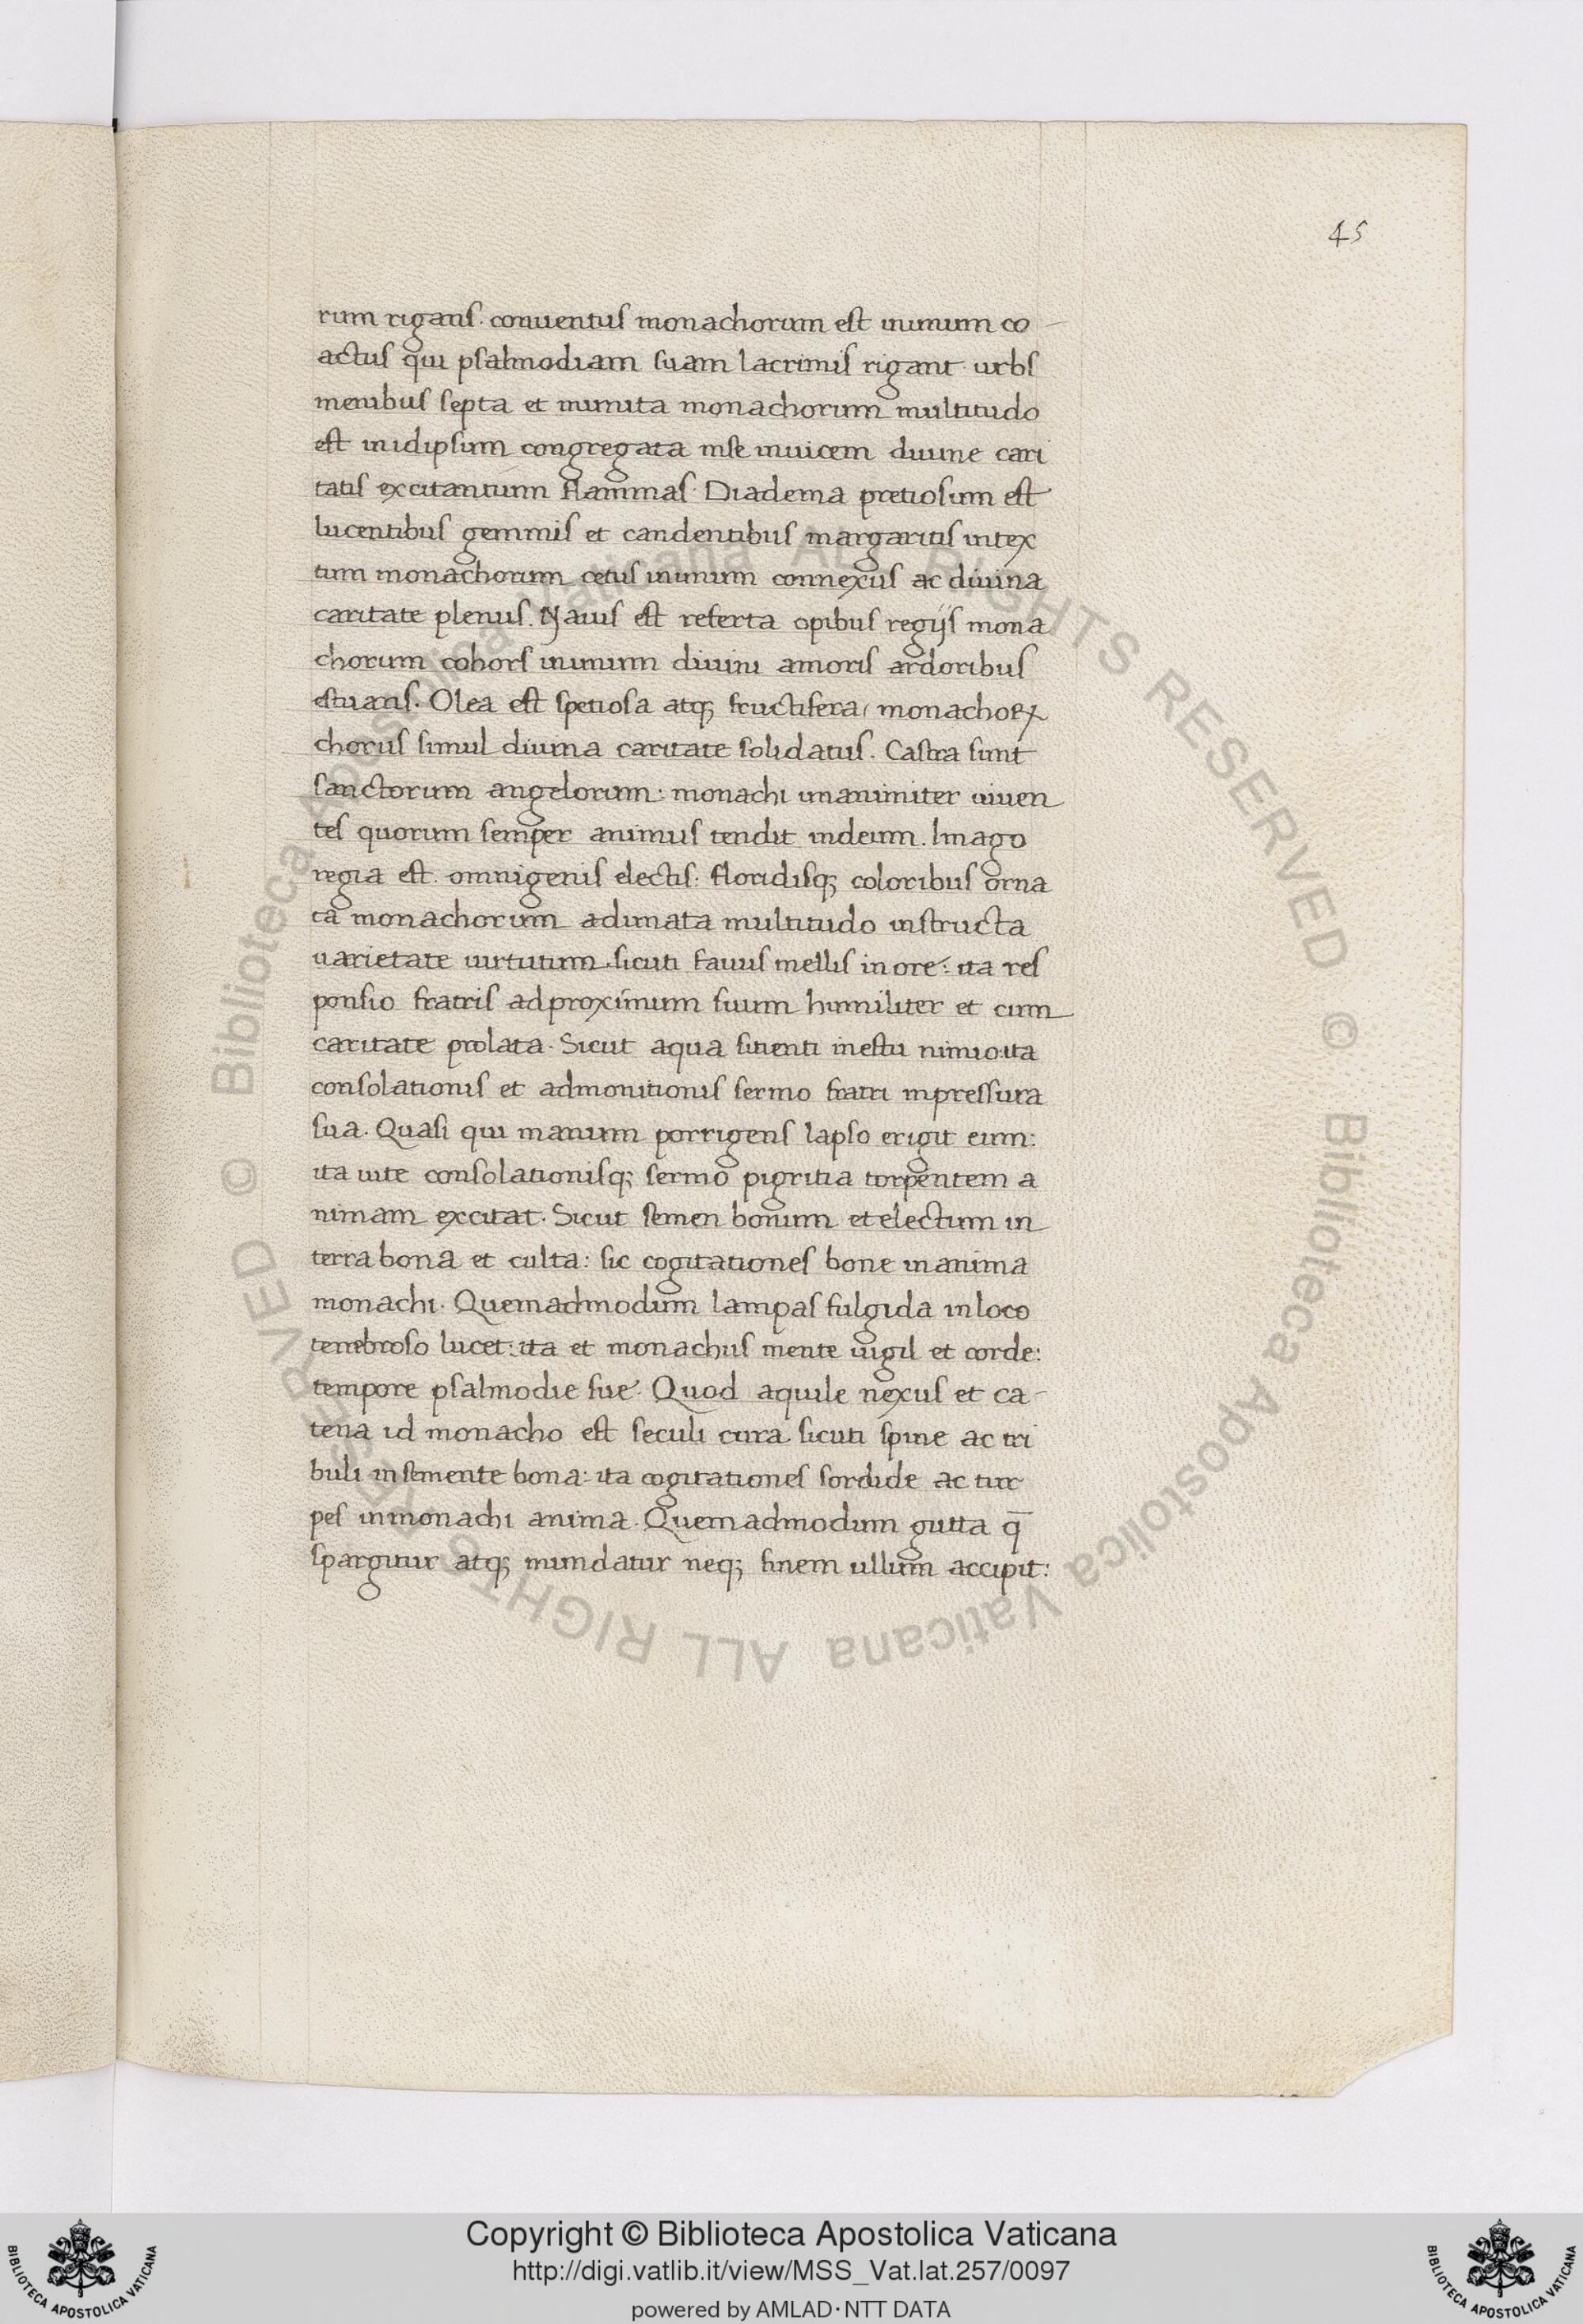 45
rum rigans. conuentus monachorum est inunum co-
actus qui psalmodiam suam lacrimis rigant. urbs
menibus septa et munita monachorum multitudo
est inidipsum congregata inse inuicem diuine cari
tatis excitantium flammas. Diadema pretiosum est
lucentibus gemmis et candentibus margaritis intex
tum monachorum cetus inunum connexus ac diuina
caritate plenus. Nauis est referta opibus regijs mona
chorum cohors inunum diuini amoris ardoribus
estuans. Olea est spetiosa atq; fructifera/ monachoꝝ
chorus simul diuina caritate solidatus. Castra sunt
sanctorum angelorum: monachi unanimiter uiuen
tes quorum semper animus tendit indeum. Imago
regia est omnigenis electis: floridisq; coloribus orna
ta monachorum adunata multitudo instructa
uarietate uirtutum. sicuti fauus mellis in ore: ita res
ponsio fratris adproximum suum humiliter et cum
caritate prolata. Sicut aqua sitienti inestu nimio: ita
consolationis et admonitionis sermo fratri inpressura
sua. Quasi qui manum porrigens lapso erigit eum:
ita uite consolationisq; sermo pigritia torpentem a
nimam excitat. Sicut semen bonum et electum in
terra bona et culta: sic cogitationes bone inanima
monachi. Quemadmodum lampas fulgida inloco
tenebroso lucet: ita et monachus mente uigil et corde:
tempore psalmodie sue. Quod aquile nexus et ca-
tena id monacho est seculi cura sicuti spine ac tri
buli insemente bona: ita cogitationes sordide ac tur
pes inmonachi anima. Quemadmodum gutta q̄
spargitur atq; mundatur neq; finem ullum accipit:
© Biblioteca Apostolica Vaticana ALL RIGHTS RESERVED © Biblioteca Apostolica Vaticana ALL RIGHTS RESERVED
BIBLIOTECA APOSTOLICA VATICANA
Copyright © Biblioteca Apostolica Vaticana
http://digi.vatlib.it/view/MSS_Vat.lat.257/0097
powered by AMLAD·NTT DATA
BIBLIOTECA APOSTOLICA VATICANA